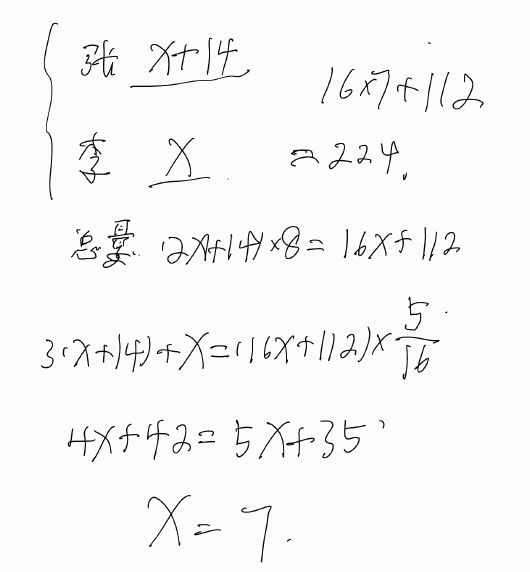 张 x+14
李 x
16×7+112
=224.
总量 (2x+14)×8=16x+112
3(x+14)+x=(16x+112)×5/16
4x+42=5x+35
x=7.